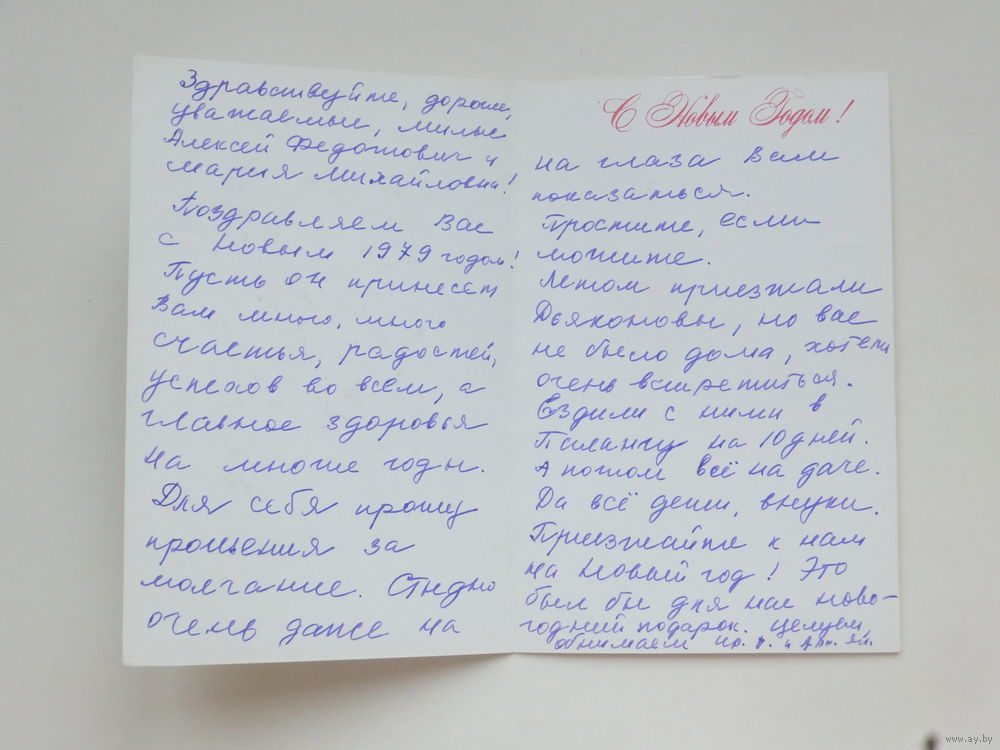 Здравствуйте, дорогие,
уважаемые, милые
Алексей Федотович и
Мария Михайловна!
Поздравляем Вас
с Новым 1979 годом!
Пусть он принесет
Вам много, много
счастья, радостей,
успехов во всем, а
главное здоровья
на многие годы.
Для себя прошу
прощения за
молчание. Стыдно
очень даже на
С Новым Годом!
на глаза Вам
показаться.
Простите, если
можите.
Летом приезжали
Дьяконовы, но вас
не было дома, хотели
очень встретиться.
Ездили с ними в
Палангу на 10 дней.
А потом всё на даче.
Да всё дети, внуки.
Приезжайте к нам
на Новый год! Это
был бы для нас ново-
годний подарок. Целуем
обнимаем
www.ay.by